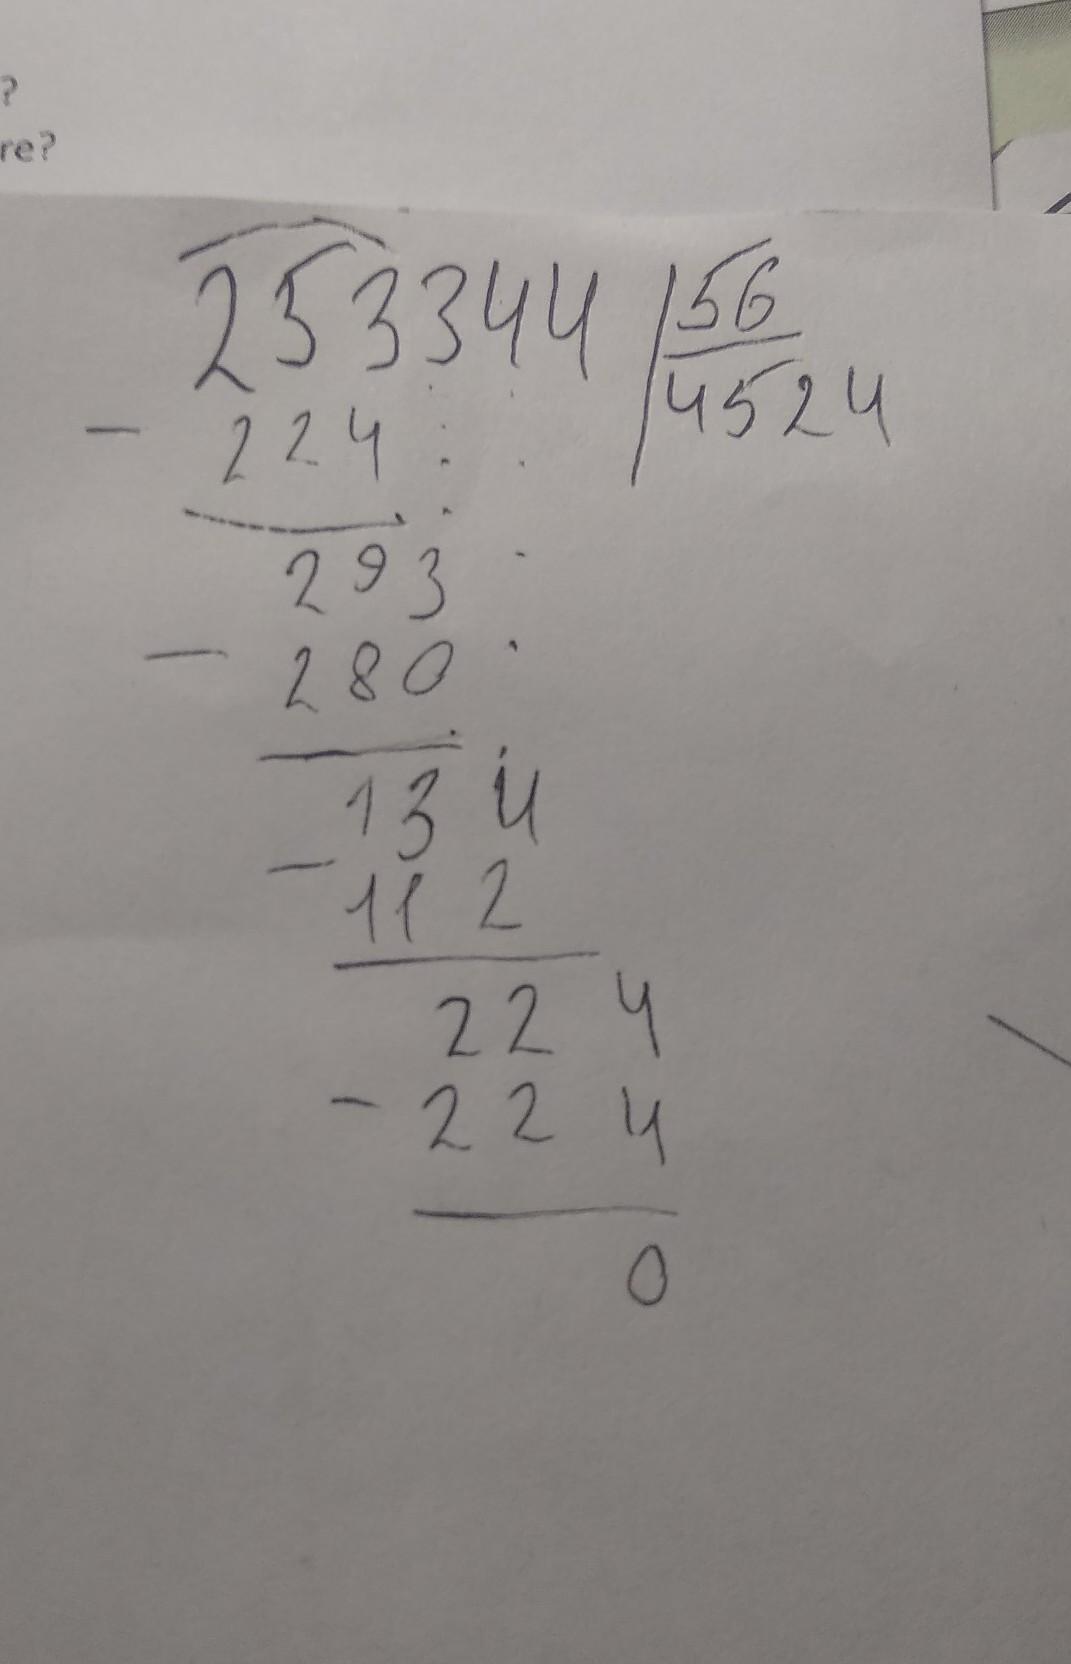 ?
re?
253344 56
4524
- 224
293
- 280
134
- 112
224
- 224
0